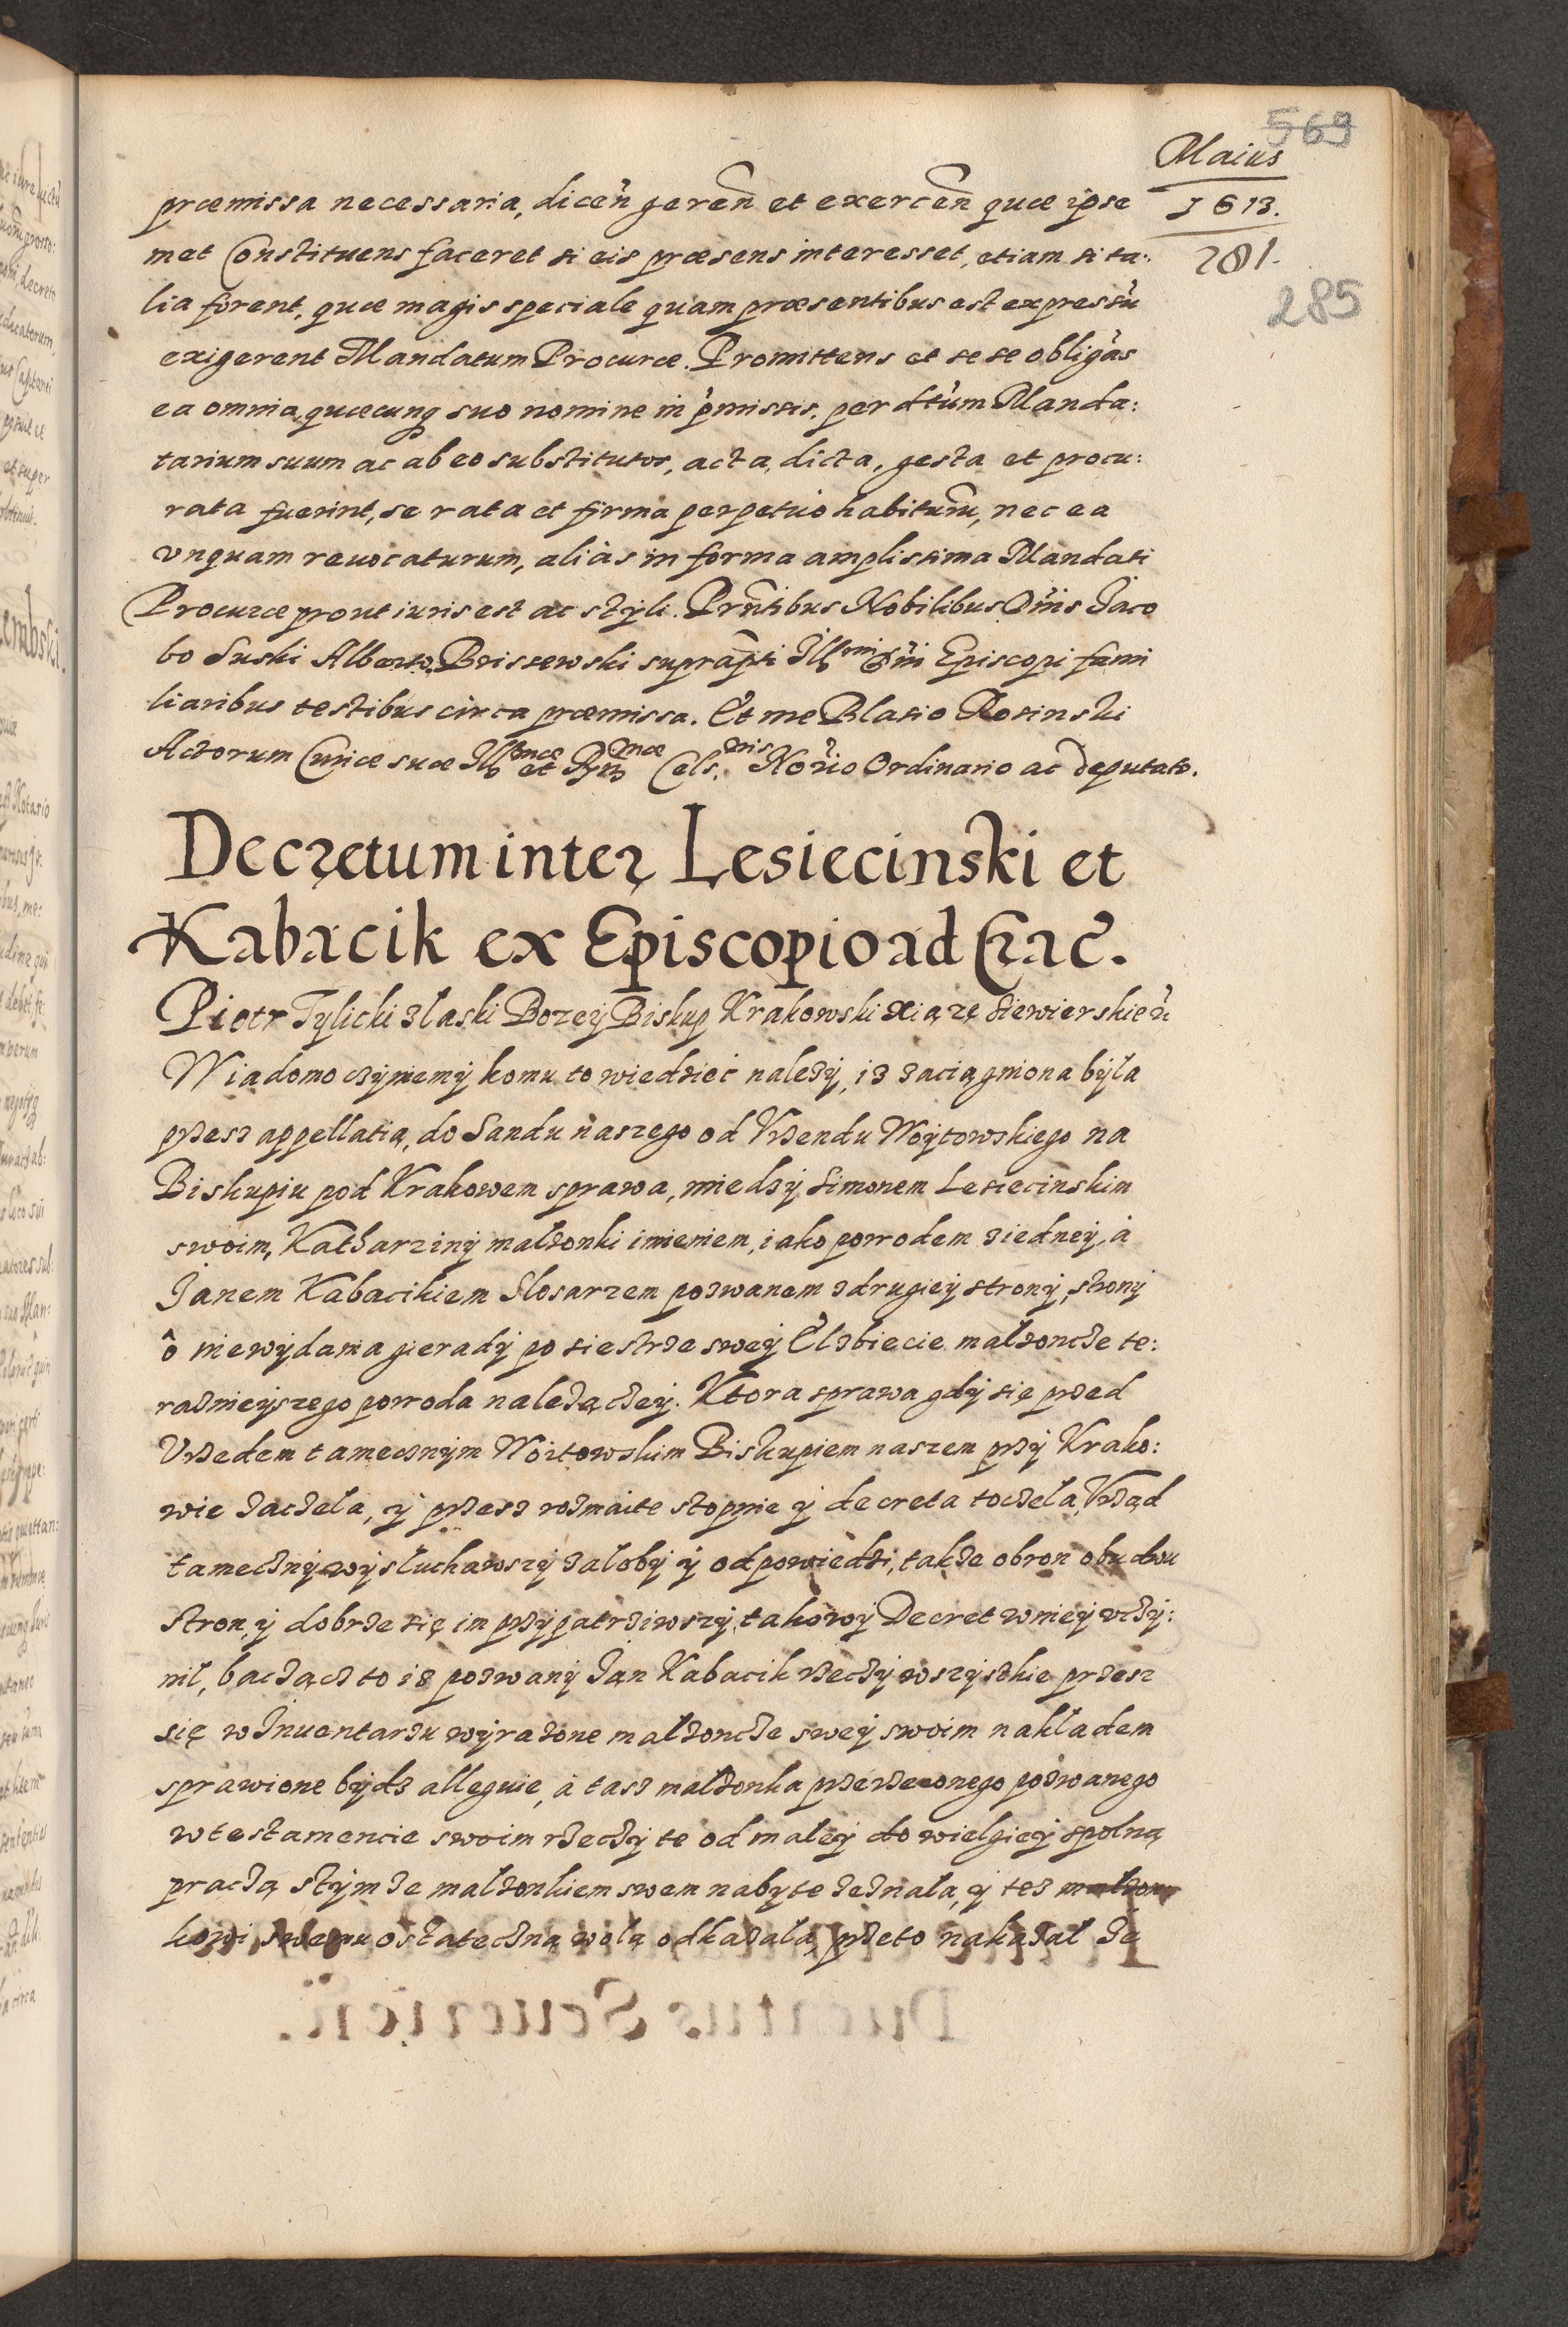 569
Maius
1613.
281.
285
præmissa necessaria, dicen̄ geren̄ et exercen̄ quæ ipse
met Constituens faceret si eis præsens interesset, etiam si ta:
lia forent, quæ magis speciale quam præsentibus est expressū
exigerent Mandatum Procuræ. Promittens et se se obligās
ea omnia, quæcunq suo nomine in p̄missis, per dt̄um Manda:
tarium suum ac ab eo substitutos, acta, dicta, gesta et procu:
rata fuerint, se rata et firma perpetuò habiturū, nec ea
vnquam reuocaturum, aliàs in forma amplissima Mandati
Procuræ prout iuris est ac styli. Prn̄tibus Nobilibus Dn̄is Jaco
bo Suski Alberto Brissewski suprap̄ti Illmi Dn̄i Episcopi fami
liaribus testibus circa præmissa. Et me Blasio Rosinski
Actorum Curiæ suæ Illmæ et Rmæ Cels.nis No̅rio Ordinario ac deputato.
Decretum inter Lesiecinski et
Kabacik ex Episcopio ad Crac̄.
Piotr Tylicki zlaski Bozey Biskup Krakowski xiązę Siewierskie
Wiadomo czyniemy komu to wiedzieć należy, iz zaciągniona była
przesz appellatią, do Sandu naszego od Vrzendu Woytowskiego na
Biskupiu pod Krakowem sprawa, miedzy Simonem Lesiecinskim
swoim, Katharziny małzonki imieniem, iako powodem ziedney, à
Janem Kabacikiem Slosarzem pozwanem zdrugiey strony, strony
ô niewydania gierady po siestrze swey Elzbiecie małzoncze te:
raznieyszego powoda należączey. Ktora sprawa gdy się przed
Vrzedem tamecznym Woitowskim Biskupiem naszem przy Krako:
wie zaczeła, y przesz rozmaite stopnie y decreta toczeła, Vrząd
tameczny wysłuchawszy załoby y odpowiedzi, takze obron obudwu
stron, y dobrze się im przypatrziwszy, takowy Decret wniey vczy:
nił, baczącz to iz pozwany Jan Kabacik rzeczy wszystkie przesz
się w Inuentarzu wyrazone małzoncze swey swoim nakładem
sprawione bydz alleguie, à tasz małzonka przerzeczonego pozwanego
w testamencie swoim rzeczy te od małey do wielgiey spolną
praczą stymze małzonkiem swem nabyte zeznała, y tez małzon
kowi swemu ostateczną wolą odkazała, przeto nakazał Je